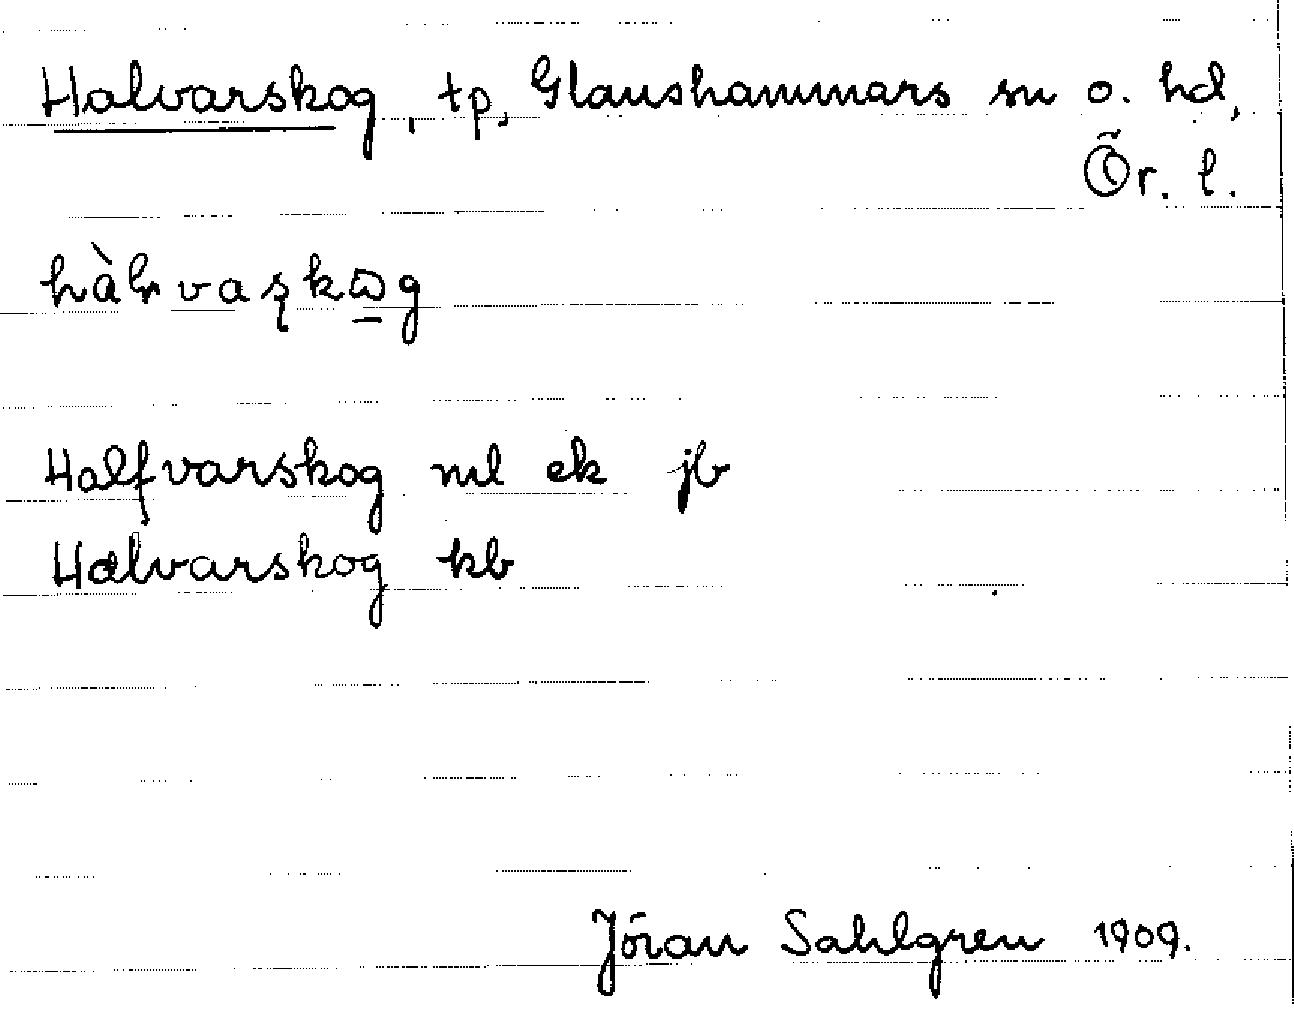 Halvarskog, tp, Glanshammars sn o. hd,
Ör. l.
Halfvarskog ml ek jb
Halvarskog kb
Jöran Sahlgren 1909.